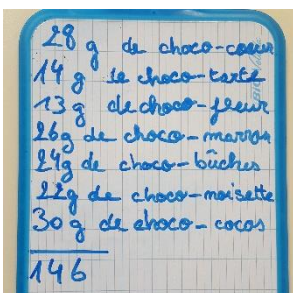 28 g de choco-coeur
14 g de choco-tarte
13 g de choco-fleur
26g de choco-marron
24g de choco-bûches
22g de choco-noisette
30g de choco-cocos
146